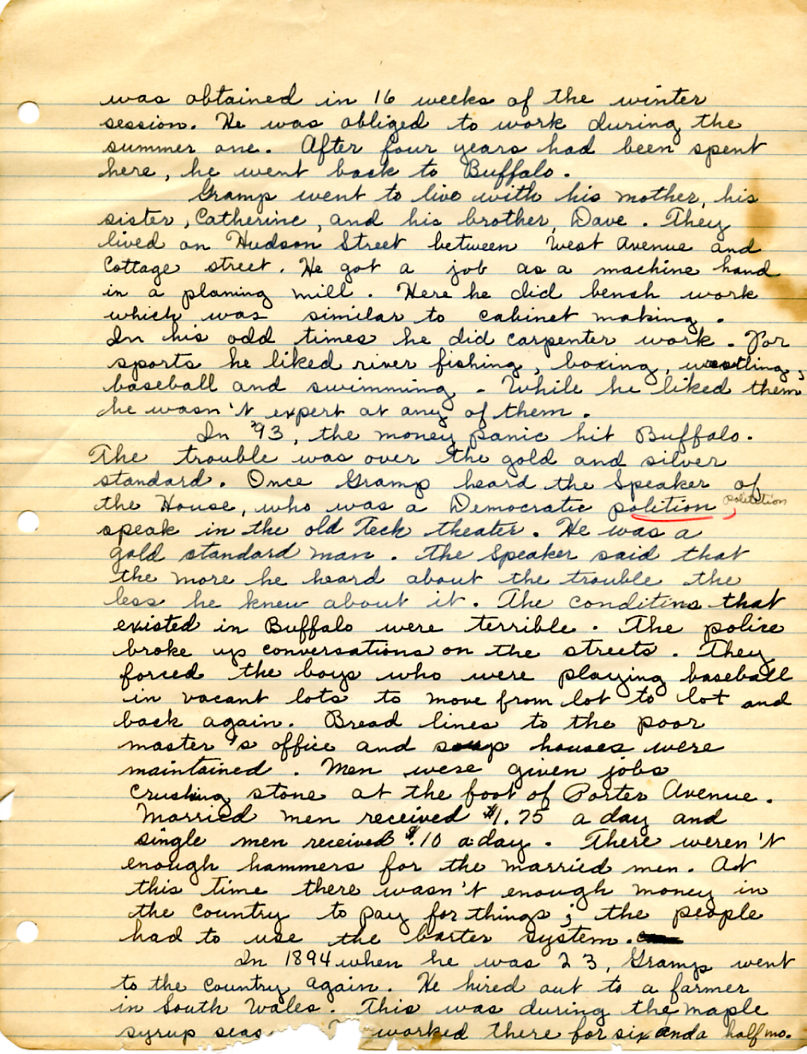 was obtained in 16 weeks of the winter
session. He was obliged to work during the
summer one. After four years had been spent
here, he went back to Buffalo.
Gramp went to live with his mother, his
sister, Catherine, and his brother, Dave. They
lived on Hudson Street between West Avenue and
Cottage street. He got a job as a machine hand
in a planing mill. Here he did bench work
which was similar to cabinet making.
In his odd times he did carpenter work. For
sports he liked river fishing, boxing, wrestling,
baseball and swimming. While he liked them
he wasn't expert at any of them.
In '93, the money panic hit Buffalo.
The trouble was over the gold and silver
standard. Once Gramp heard the Speaker of
the House, who was a Democratic polition,
speak in the old Teck theater. He was a
gold standard man. The Speaker said that
the more he heard about the trouble the
less he knew about it. The conditins that
existed in Buffalo were terrible. The police
broke up conversations on the streets. They
forced the boys who were playing baseball
in vacant lots to move from lot to lot and
back again. Bread lines to the poor
master's office and soup houses were
maintained. Men were given jobs
crushing stone at the foot of Porter Avenue.
Married men received $1.75 a day and
single men received $.10 a day. There weren't
enough hammers for the married men. At
this time there wasn't enough money in
the country to pay for things; the people
had to use the barter system.
In 1894 when he was 23, Gramp went
to the country again. He hired out to a farmer
in South Wales. This was during the maple
syrup seas worked there for six and a half mo.